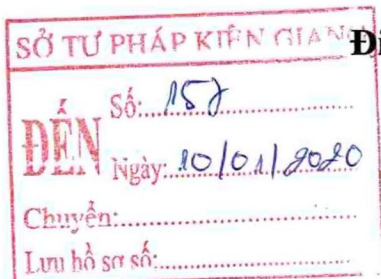 SỞ TƯ PHÁP KIÊN GIANG
Đi
ĐẾN
Số: 157
Ngày: 10/01/2020
Chuyển:
Lưu hồ sơ số: